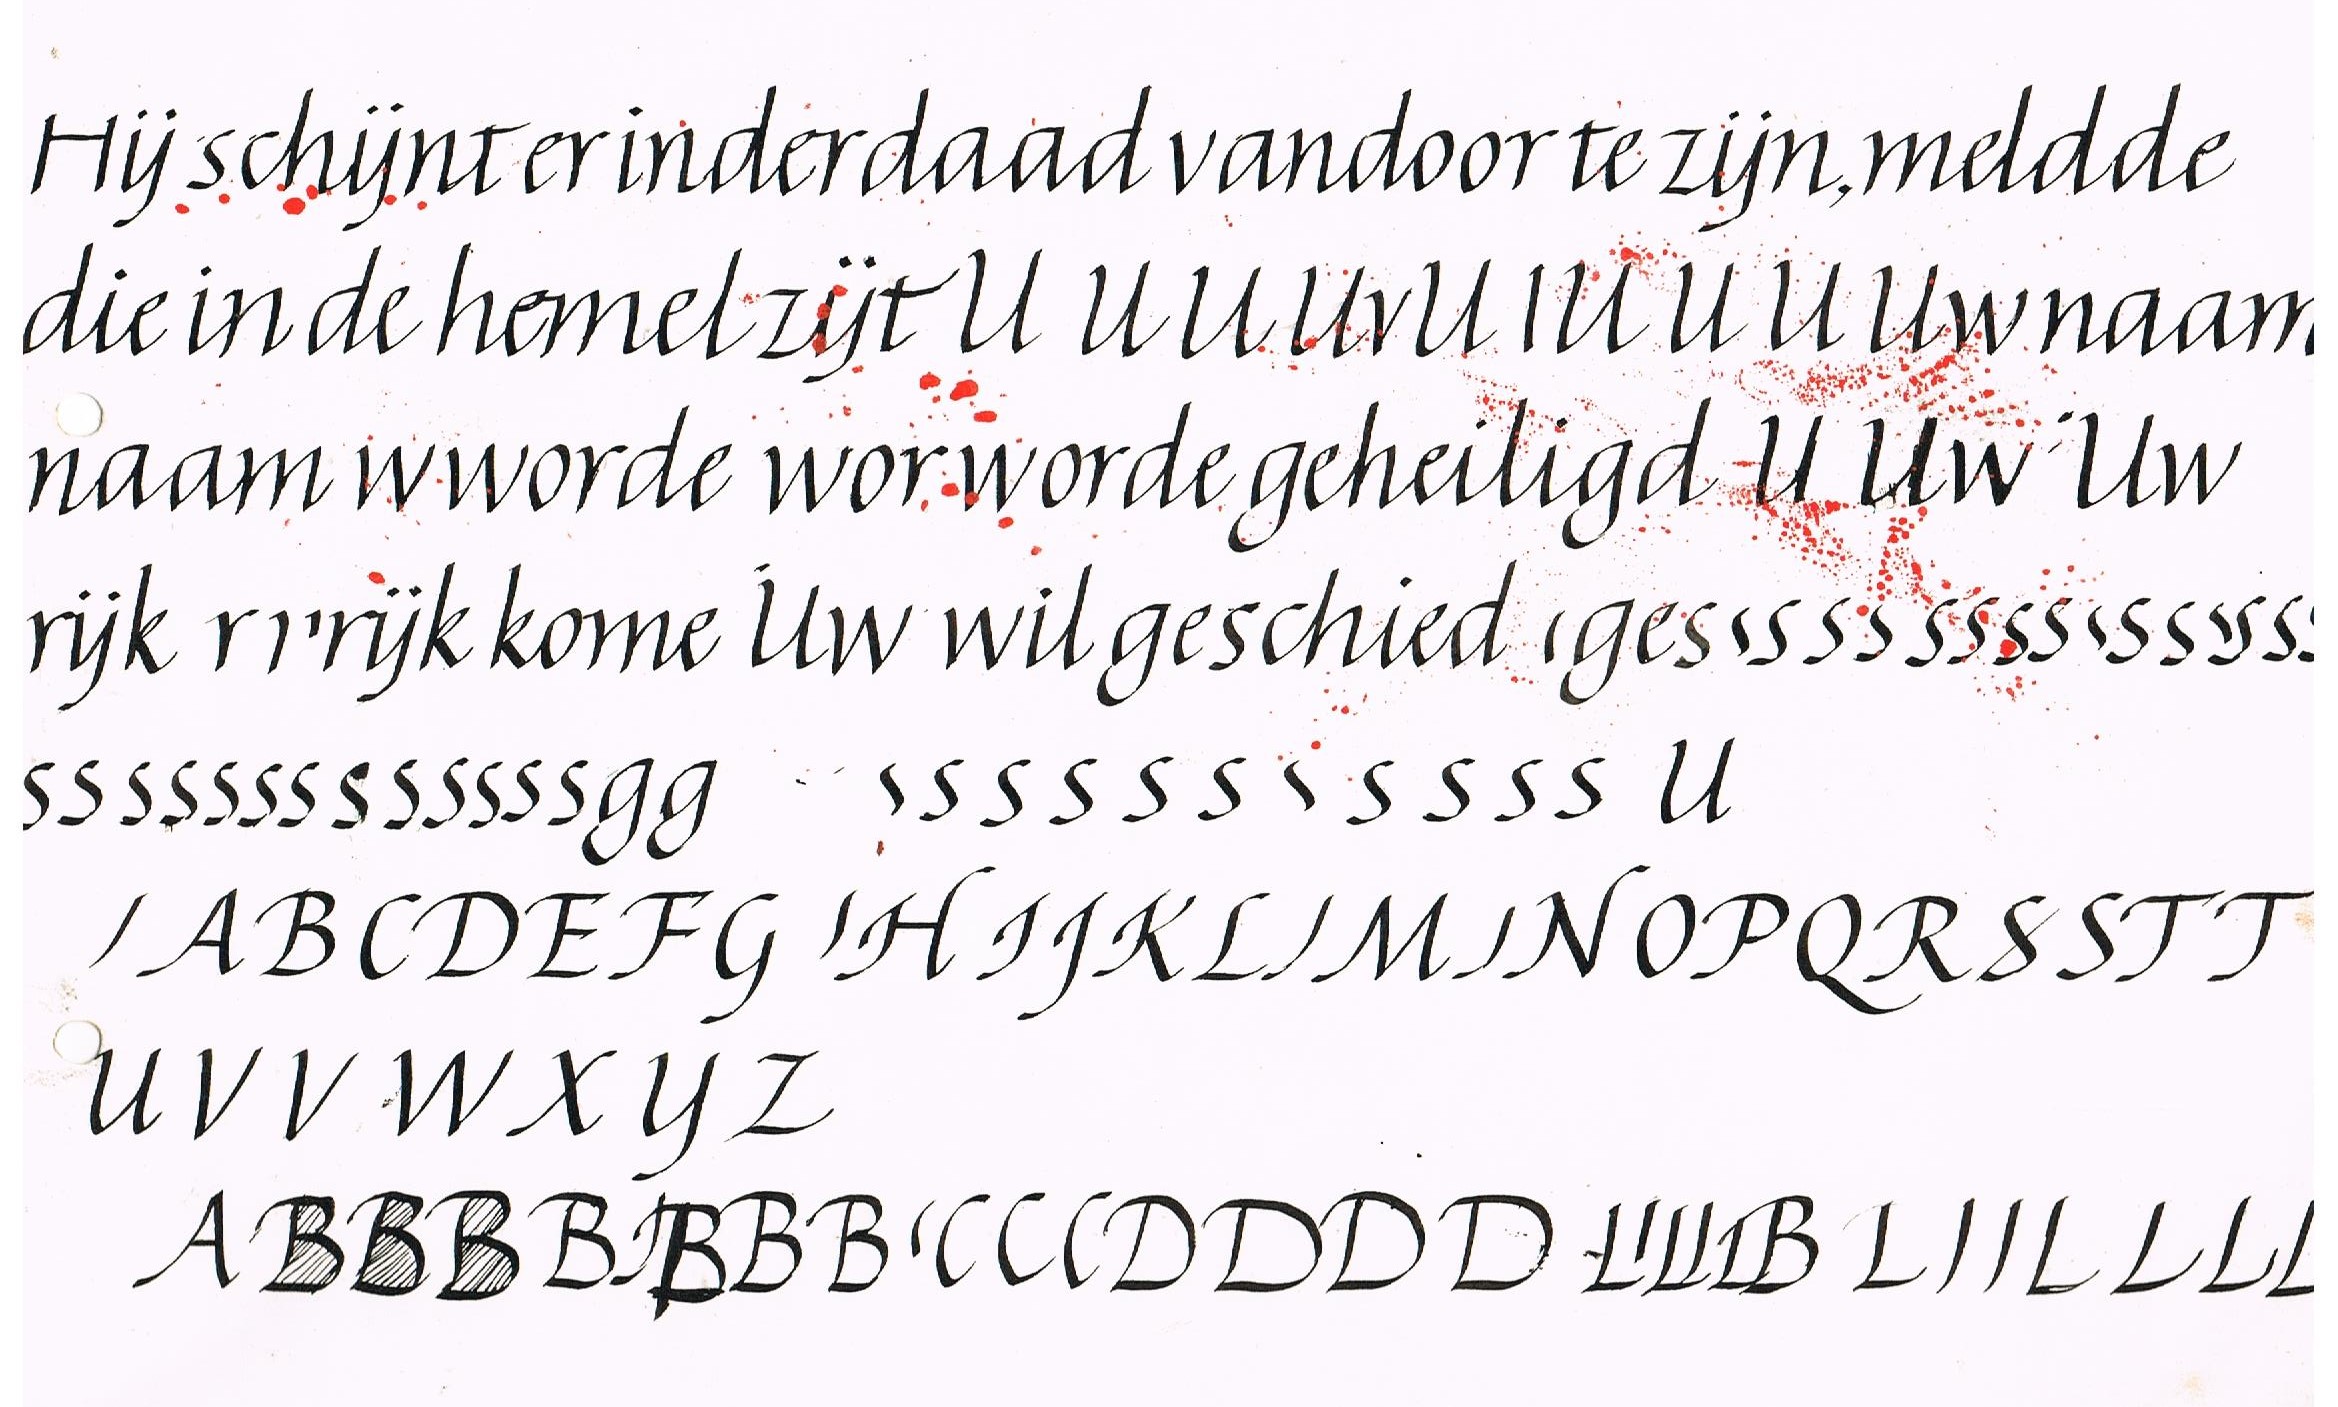 Hij schijnt er inderdaad vandoor te zijn, meldde
die in de hemel zijt U U U U v U I U U U Uw naam
naam w worde wor worde geheiligd U Uw Uw
rijk r r rijk kome Uw wil geschied ges s s s s s s s s s s s s
s s s s s s s s s s s s s s g g s s s s s s s s s U
A B C D E F G H I J K L M N O P Q R S S T T
U V V W X Y Z
A B B B B B B B C C C D D D D L L L B L I I L L L L